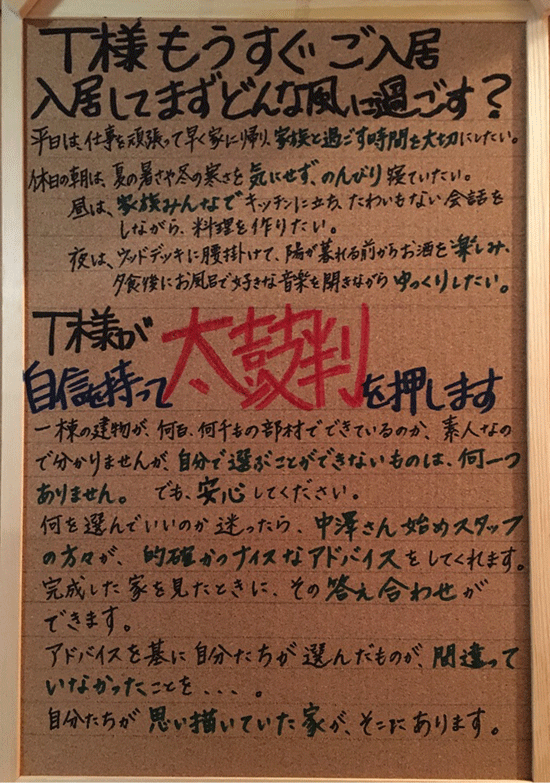 T様もうすぐご入居
入居してまずどんな風に過ごす？
平日は、仕事を頑張って早く家に帰り、家族と過ごす時間を大切にしたい。
休日の朝は、夏の暑さや冬の寒さを気にせず、のんびり寝ていたい。
昼は、家族みんなでキッチンに立ち、たわいもない会話を
しながら、料理を作りたい。
夜は、ウッドデッキに腰掛けて、陽が暮れる前からお酒を楽しみ、
夕食後にお風呂で好きな音楽を聞きながらゆっくりしたい。
T様が
自信を持って太鼓判を押します
一棟の建物が、何百、何千もの部材でできているのか、素人なの
で分かりませんが、自分で選ぶことができないものは、何一つ
ありません。でも、安心してください。
何を選んでいいのか迷ったら、中澤さん始めスタッフ
の方々が、的確かつナイスなアドバイスをしてくれます。
完成した家を見たときに、その答え合わせが
できます。
アドバイスを基に自分たちが選んだものが、間違って
いなかったことを、、、。
自分たちが思い描いていた家が、そこにあります。